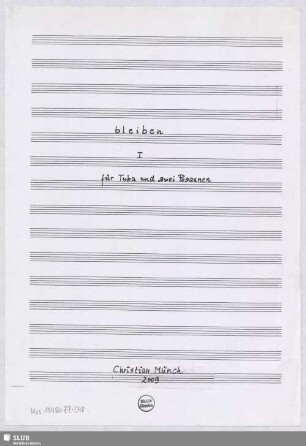 bleiben
I
für Tuba und zwei Posaunen
Christian Münch
2009
SLUB
Dresden
SLUB